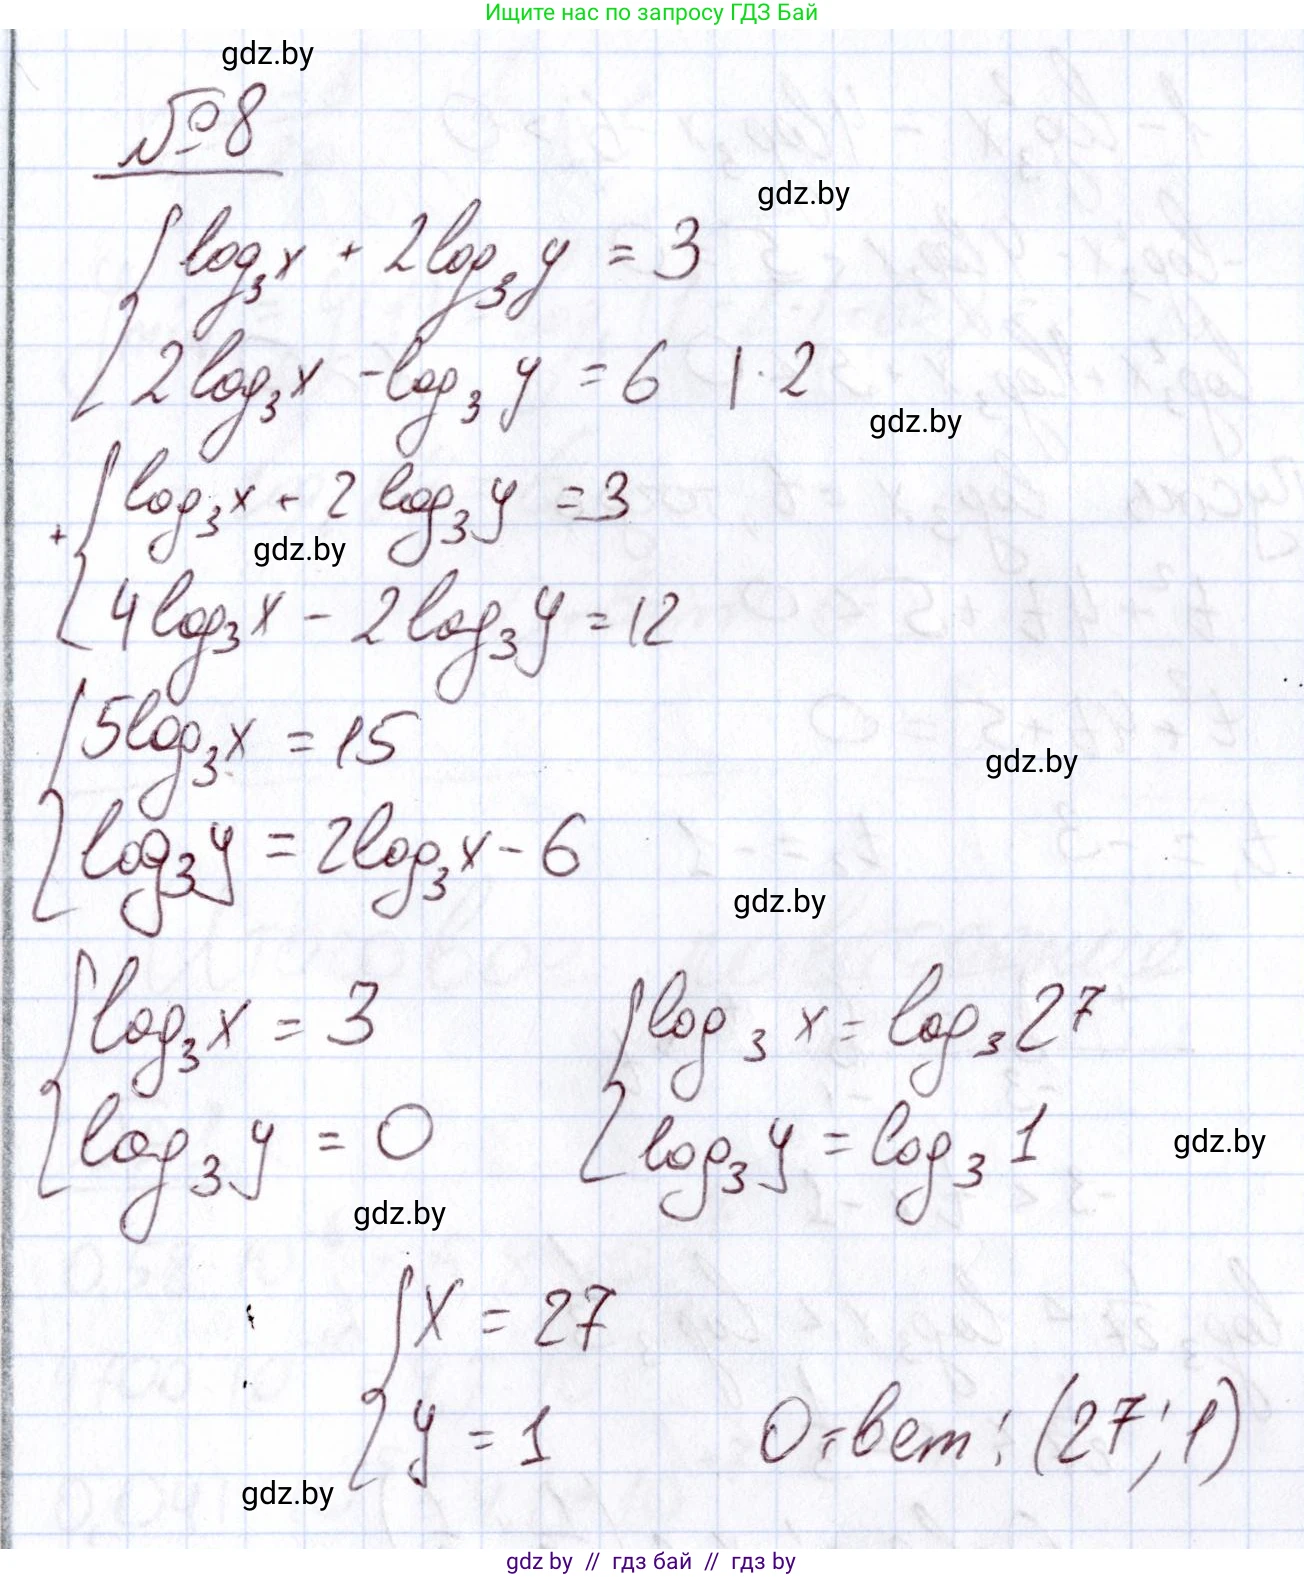 Ищите нас по запросу ГДЗ Бай
gdz.by
№8
gdz.by
log₃x + 2log₃y = 3
2log₃x - log₃y = 6 | · 2
gdz.by
log₃x + 2 log₃y = 3
+
gdz.by
4log₃x - 2log₃y = 12
5log₃x = 15
gdz.by
log₃y = 2log₃x - 6
gdz.by
log₃x = 3
log₃y = 0
log₃x = log₃27
log₃y = log₃1
gdz.by
gdz.by
x = 27
y = 1
Ответ: (27; 1)
gdz.by
gdz by // гдз бай // гдз by